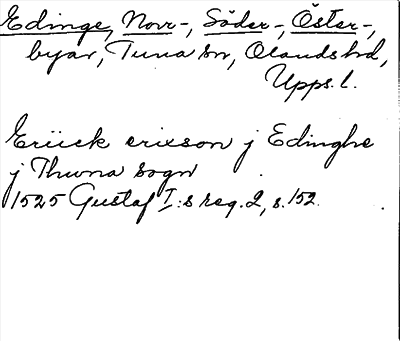 Edinge, Norr-, Söder-, Öster-,
byar, Tuna sn, Olands hd,
Upps. l.
Erück erixson j Edinghe
j Thwna sogn
1525 Gustaf I:s reg. 2, s. 152.